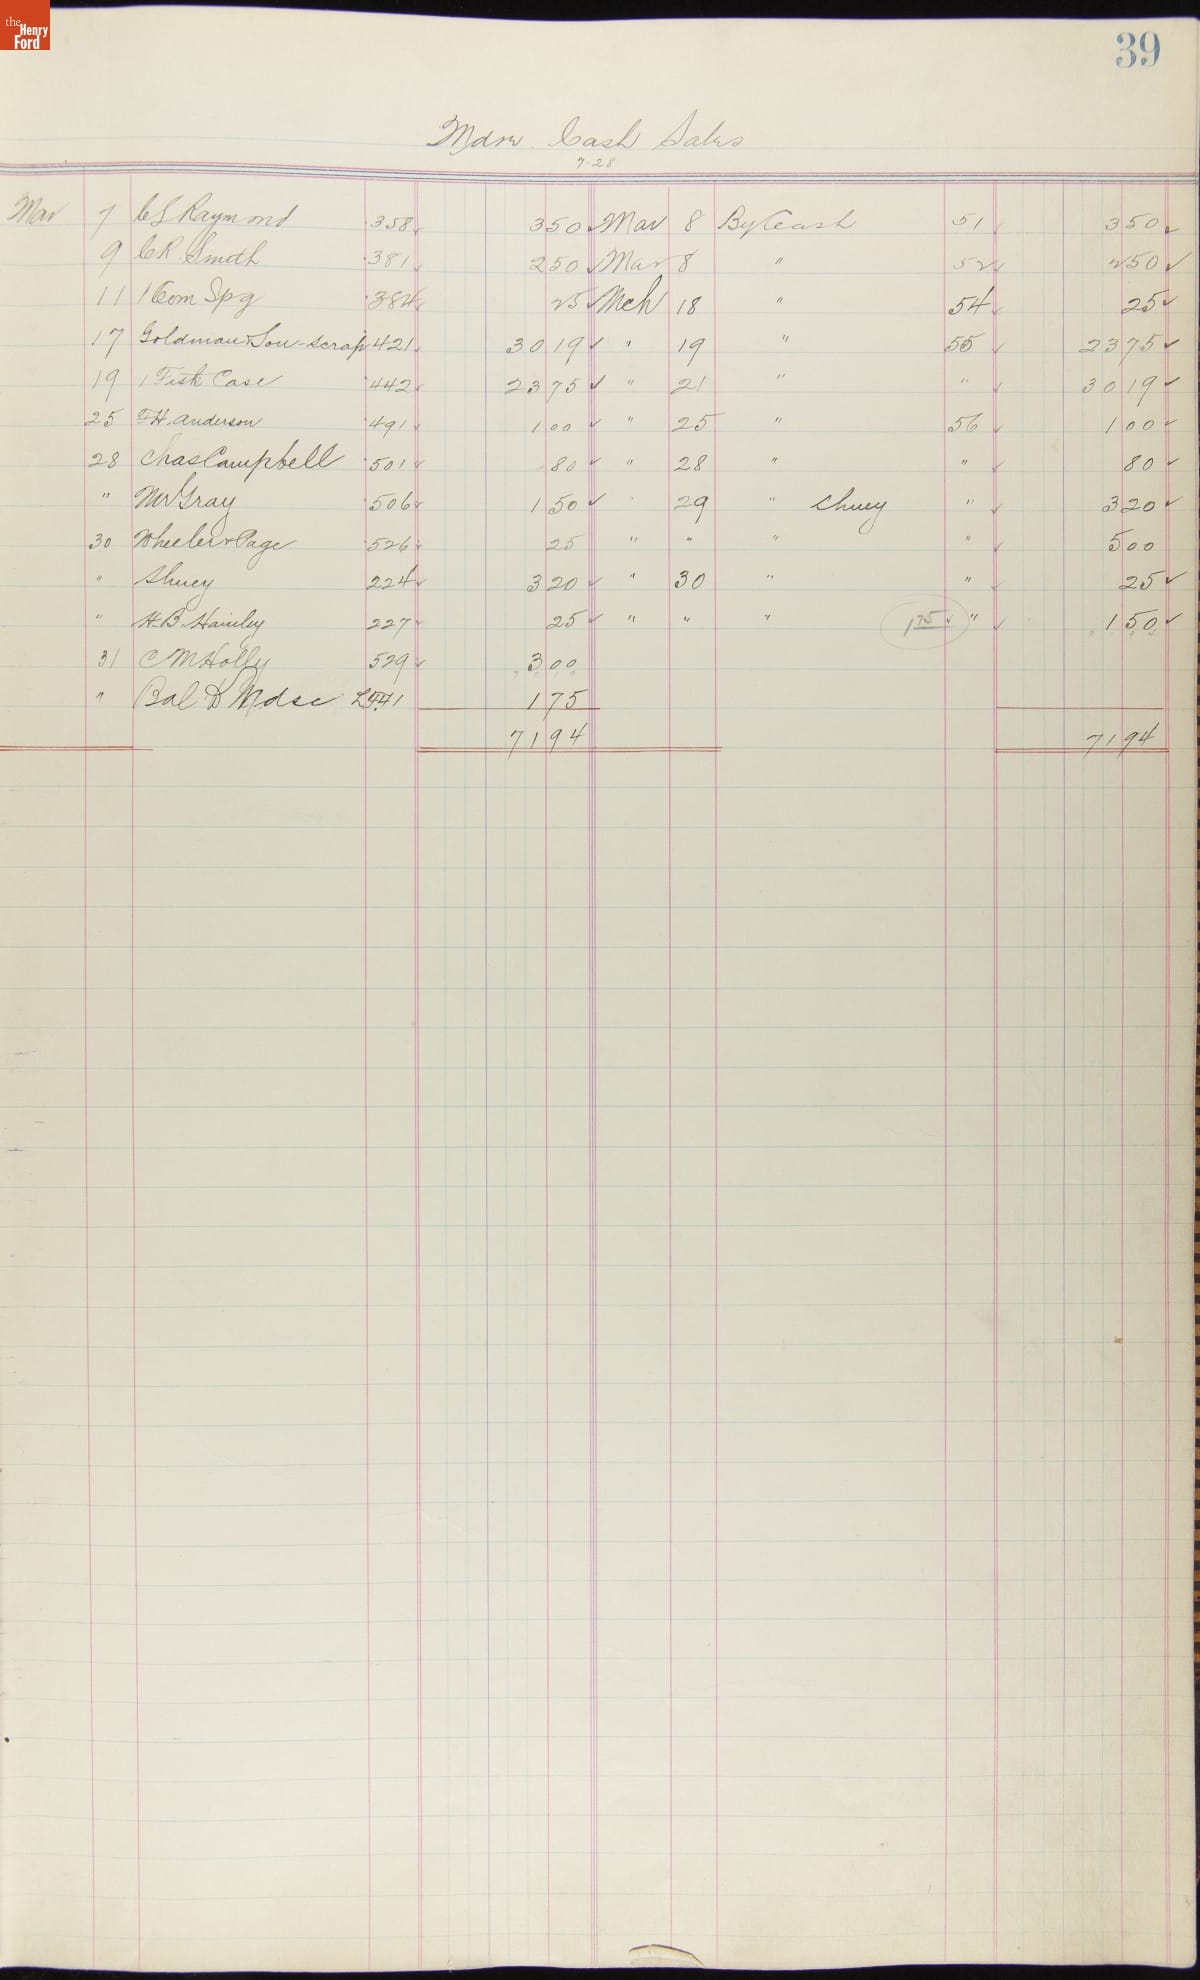 the Henry Ford
39
Mdse. Cash Sales
7-28
Mar 7 C S Raymond 358 350 Mar 8 By Cash 51 350
9 C R Smith 381 250 Mar 8 " 52 250
11 1 Com Spg 384 25 Mch 18 " 54 25
17 Goldman & Son - scrap 421 3019 " 19 " 55 2375
19 1 Fisk Case 442 2375 " 21 " " 3019
25 F.H. Anderson 491 100 " 25 " 56 100
28 Chas Campbell 501 80 " 28 " " 80
" Mr Gray 506 150 " 29 " Shuey " 320
30 Wheeler & Page 526 25 " " " " 500
" Shuey 224 320 " 30 " " 25
" H.B. 227 25 " " " 175 " 150
31 C M Holly 529 300
" Bal Mdse 175
7194 7194